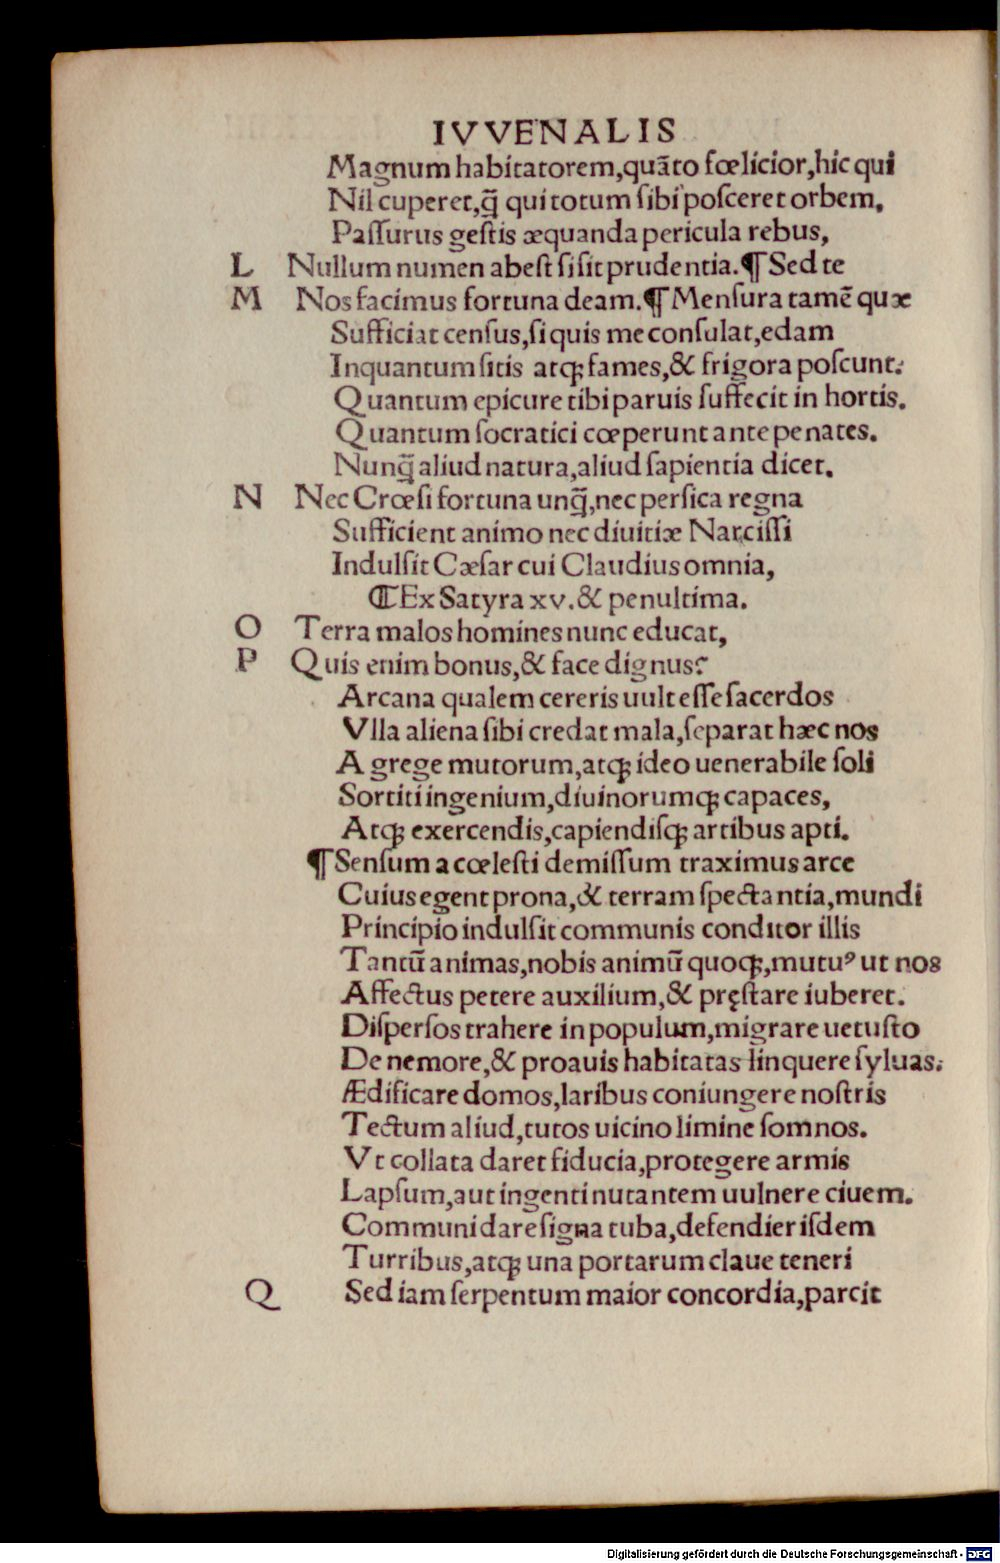 IVVENALIS
Magnum habitatorem,quāto fœlicior,hic qui
Nil cuperet,q̄ qui totum ſibi poſceret orbem.
Paſſurus geſtis æquanda pericula rebus,
L Nullum numen abeſt ſi ſit prudentia.¶ Sed te
M Nos facimus fortuna deam.¶ Menſura tamē quæ
Sufficiat cenſus,ſi quis me conſulat,edam
Inquantum ſitis atqꝫ fames,& frigora poſcunt.
Quantum epicure tibi paruis ſuffecit in hortis.
Quantum ſocratici cœperunt ante penates.
Nunq̄ aliud natura,aliud ſapientia dicet.
N Nec Crœſi fortuna unq̄,nec perſica regna
Sufficient animo nec diuitiæ Narciſſi
Indulſit Cæſar cui Claudius omnia,
℃Ex Satyra xv.& penultima.
O Terra malos homines nunc educat,
P Quis enim bonus,& face dignus?
Arcana qualem cereris uult eſſe ſacerdos
Vlla aliena ſibi credat mala,ſeparat hæc nos
A grege mutorum,atqꝫ ideo uenerabile ſoli
Sortiti ingenium,diuinorumqꝫ capaces,
Atqꝫ exercendis,capiendiſqꝫ artibus apti.
¶ Senſum a cœleſti demiſſum traximus arce
Cuius egent prona,& terram ſpectantia,mundi
Principio indulſit communis conditor illis
Tantū animas,nobis animū quoqꝫ,mutuꝰ ut nos
Affectus petere auxilium,& pręſtare iuberet.
Diſperſos trahere in populum,migrare uetuſto
De nemore,& proauis habitatas linquere ſyluas.
Ædificare domos,laribus coniungere noſtris
Tectum aliud,tutos uicino limine ſomnos.
Vt collata daret fiducia,protegere armis
Lapſum,aut ingenti nutantem uulnere ciuem.
Communi dare ſigna tuba,defendier iſdem
Turribus,atqꝫ una portarum claue teneri
Q Sed iam ſerpentum maior concordia,parcit
Digitalisierung gefördert durch die Deutsche Forschungsgemeinschaft - DFG